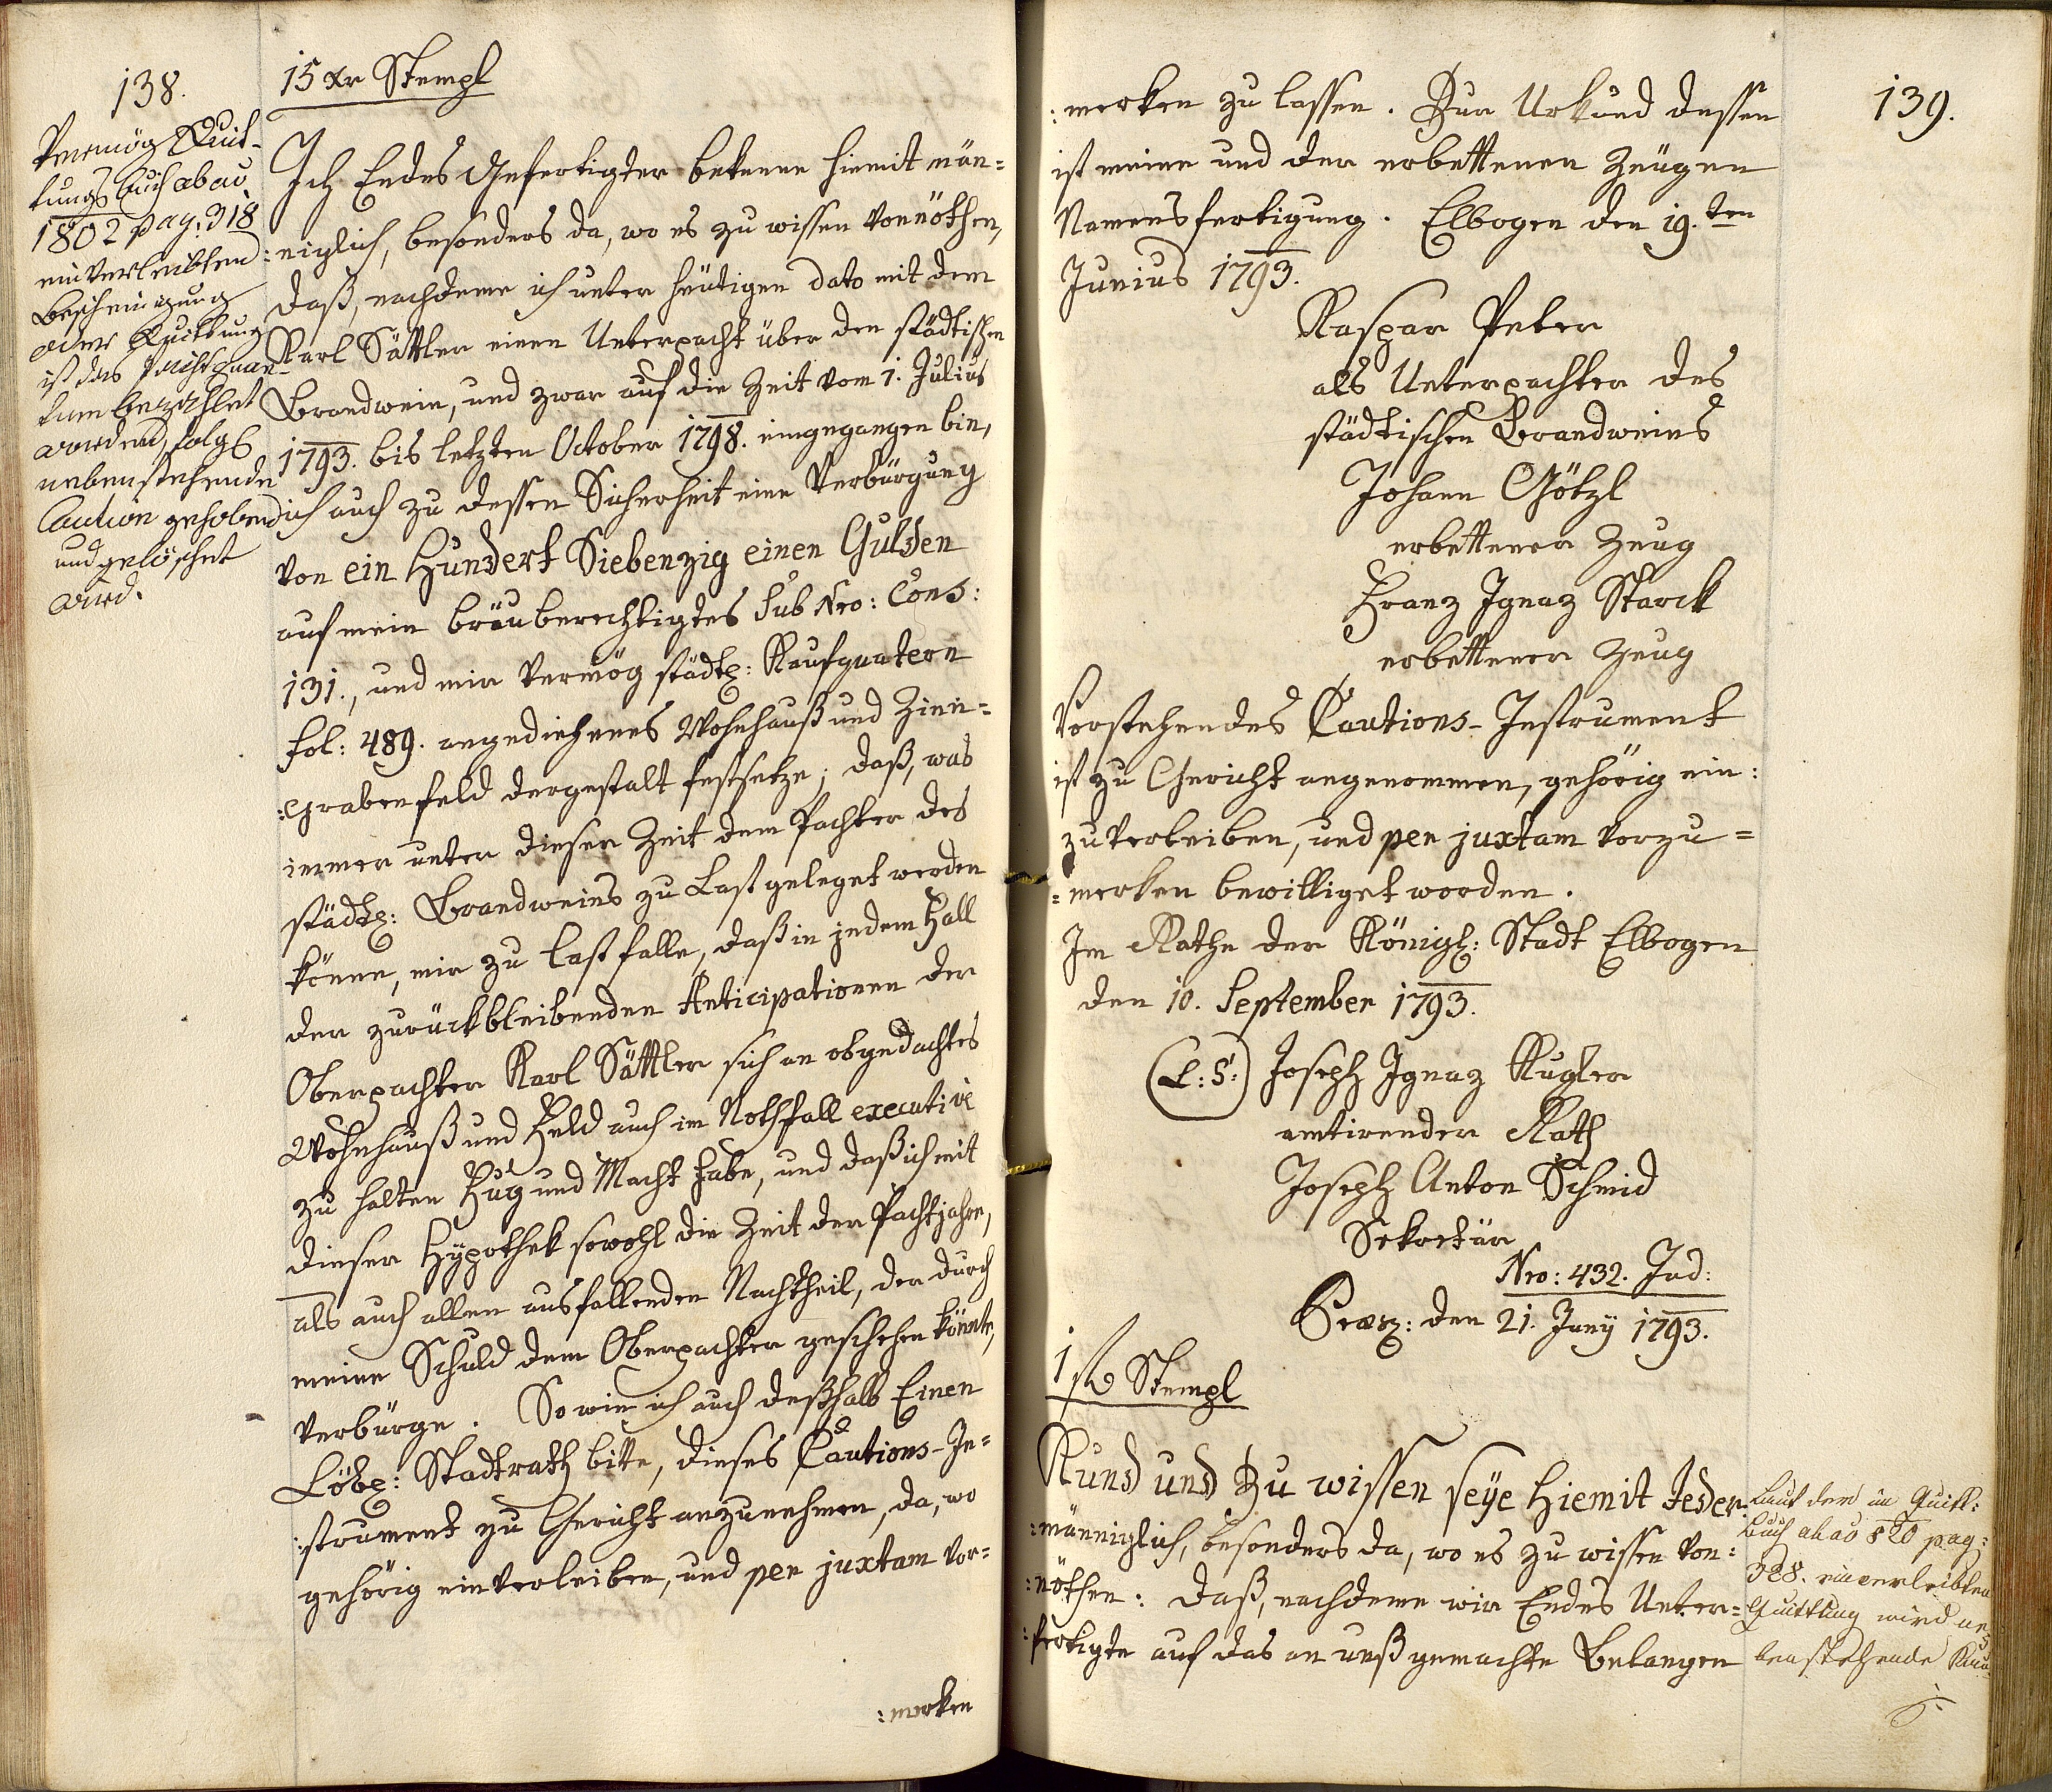 138.
15 xr Stempl
Vermög Quit-
tungs buch ab ao
1802 pag. 318
einverleibten
Bescheinigung
oder Quittung
ist das Pachtquan-
tum bezahlet
worden, folgl
nebenstehende
Caution gehoben
und gelöschet
wird.
Ich Endes Gefertigter bekenne hiemit män=
:niglich, besonders da, wo es zu wissen vonnöthen,
daß, nachdeme ich unter heütigen dato mit dem
Karl Sättler einen Unterpacht über den städtischen
Brandwein, und zwar auf die Zeit vom 1. Julius
1793. bis letzten October 1798. eingegangen bin,
ich auch zu dessen Sicherheit eine Verbürgung
von ein Hundert Siebenzig einen Gulden
auf mein bräuberechtigtes sub Nro: Cons:
131., und mir vermög städt: Kaufquatern
fol: 489. angediehenes Wohnhauß und Zinn=
:grabenfeld dergestalt festsetze; daß, was
immer unter dieser Zeit dem Pachter des
städt: Brandweins zu Last geleget werden
könne, mir zu Last falle, daß in jedem Fall
der zurückbleibenden Anticipationen der
Oberpachter Karl Sättler sich an obgedachtes
Wohnhauß und Feld auch im Nothfall executive
zu halten Fug und Macht habe, und daß ich mit
dieser Hypothek sowohl die Zeit der Pachtjahre,
als auch allen ausfallenden Nachtheil, der durch
meine Schuld dem Oberpachter geschehen könnte,
verbürge. So wie ich auch deßhalb Einen
Löbl: Stadtrath bitte, dieses Cautions-In=
:strument zu Gericht anzunehmen, da, wo
gehörig einverleiben, und per juxtam vor=
:merken
139.
:merken zu lassen. Zur Urkund dessen
ist meine und der erbettenen Zeügen
Namensfertigung. Elbogen den 19.ten
Junius 1793.
Kaspar Peter
als Unterpachter des
städtischen Brandweins
Johann Götzl
erbettener Zeug
Franz Ignaz Starck
erbettener Zeug
Vorstehendes Cautions-Instrument
ist zu Gericht angenommen, gehörig ein:
zuverleiben, und per juxtam vorzu=
=merken bewilliget worden.
Im Rathe der Königl: Stadt Elbogen
den 10. September 1793.
(L:S:) Joseph Ignaz Kugler
amtirender Rath
Joseph Anton Schmid
Sekretär
Nro: 432. Jud:
Præs: den 21. Juny 1793.
1 f Stempl
Kund und Zu wissen seye Hiemit Jeder:
:männiglich, besonders da, wo es zu wissen von:
:nöthen: daß, nachdeme wir Endes Unter=
:fertigte auf das an unß gemachte Belangen
Laut der im Quitt:
buch ab ao 820 pag:
328. einverleibten
Quittung wird ne-
benstehende Kau-